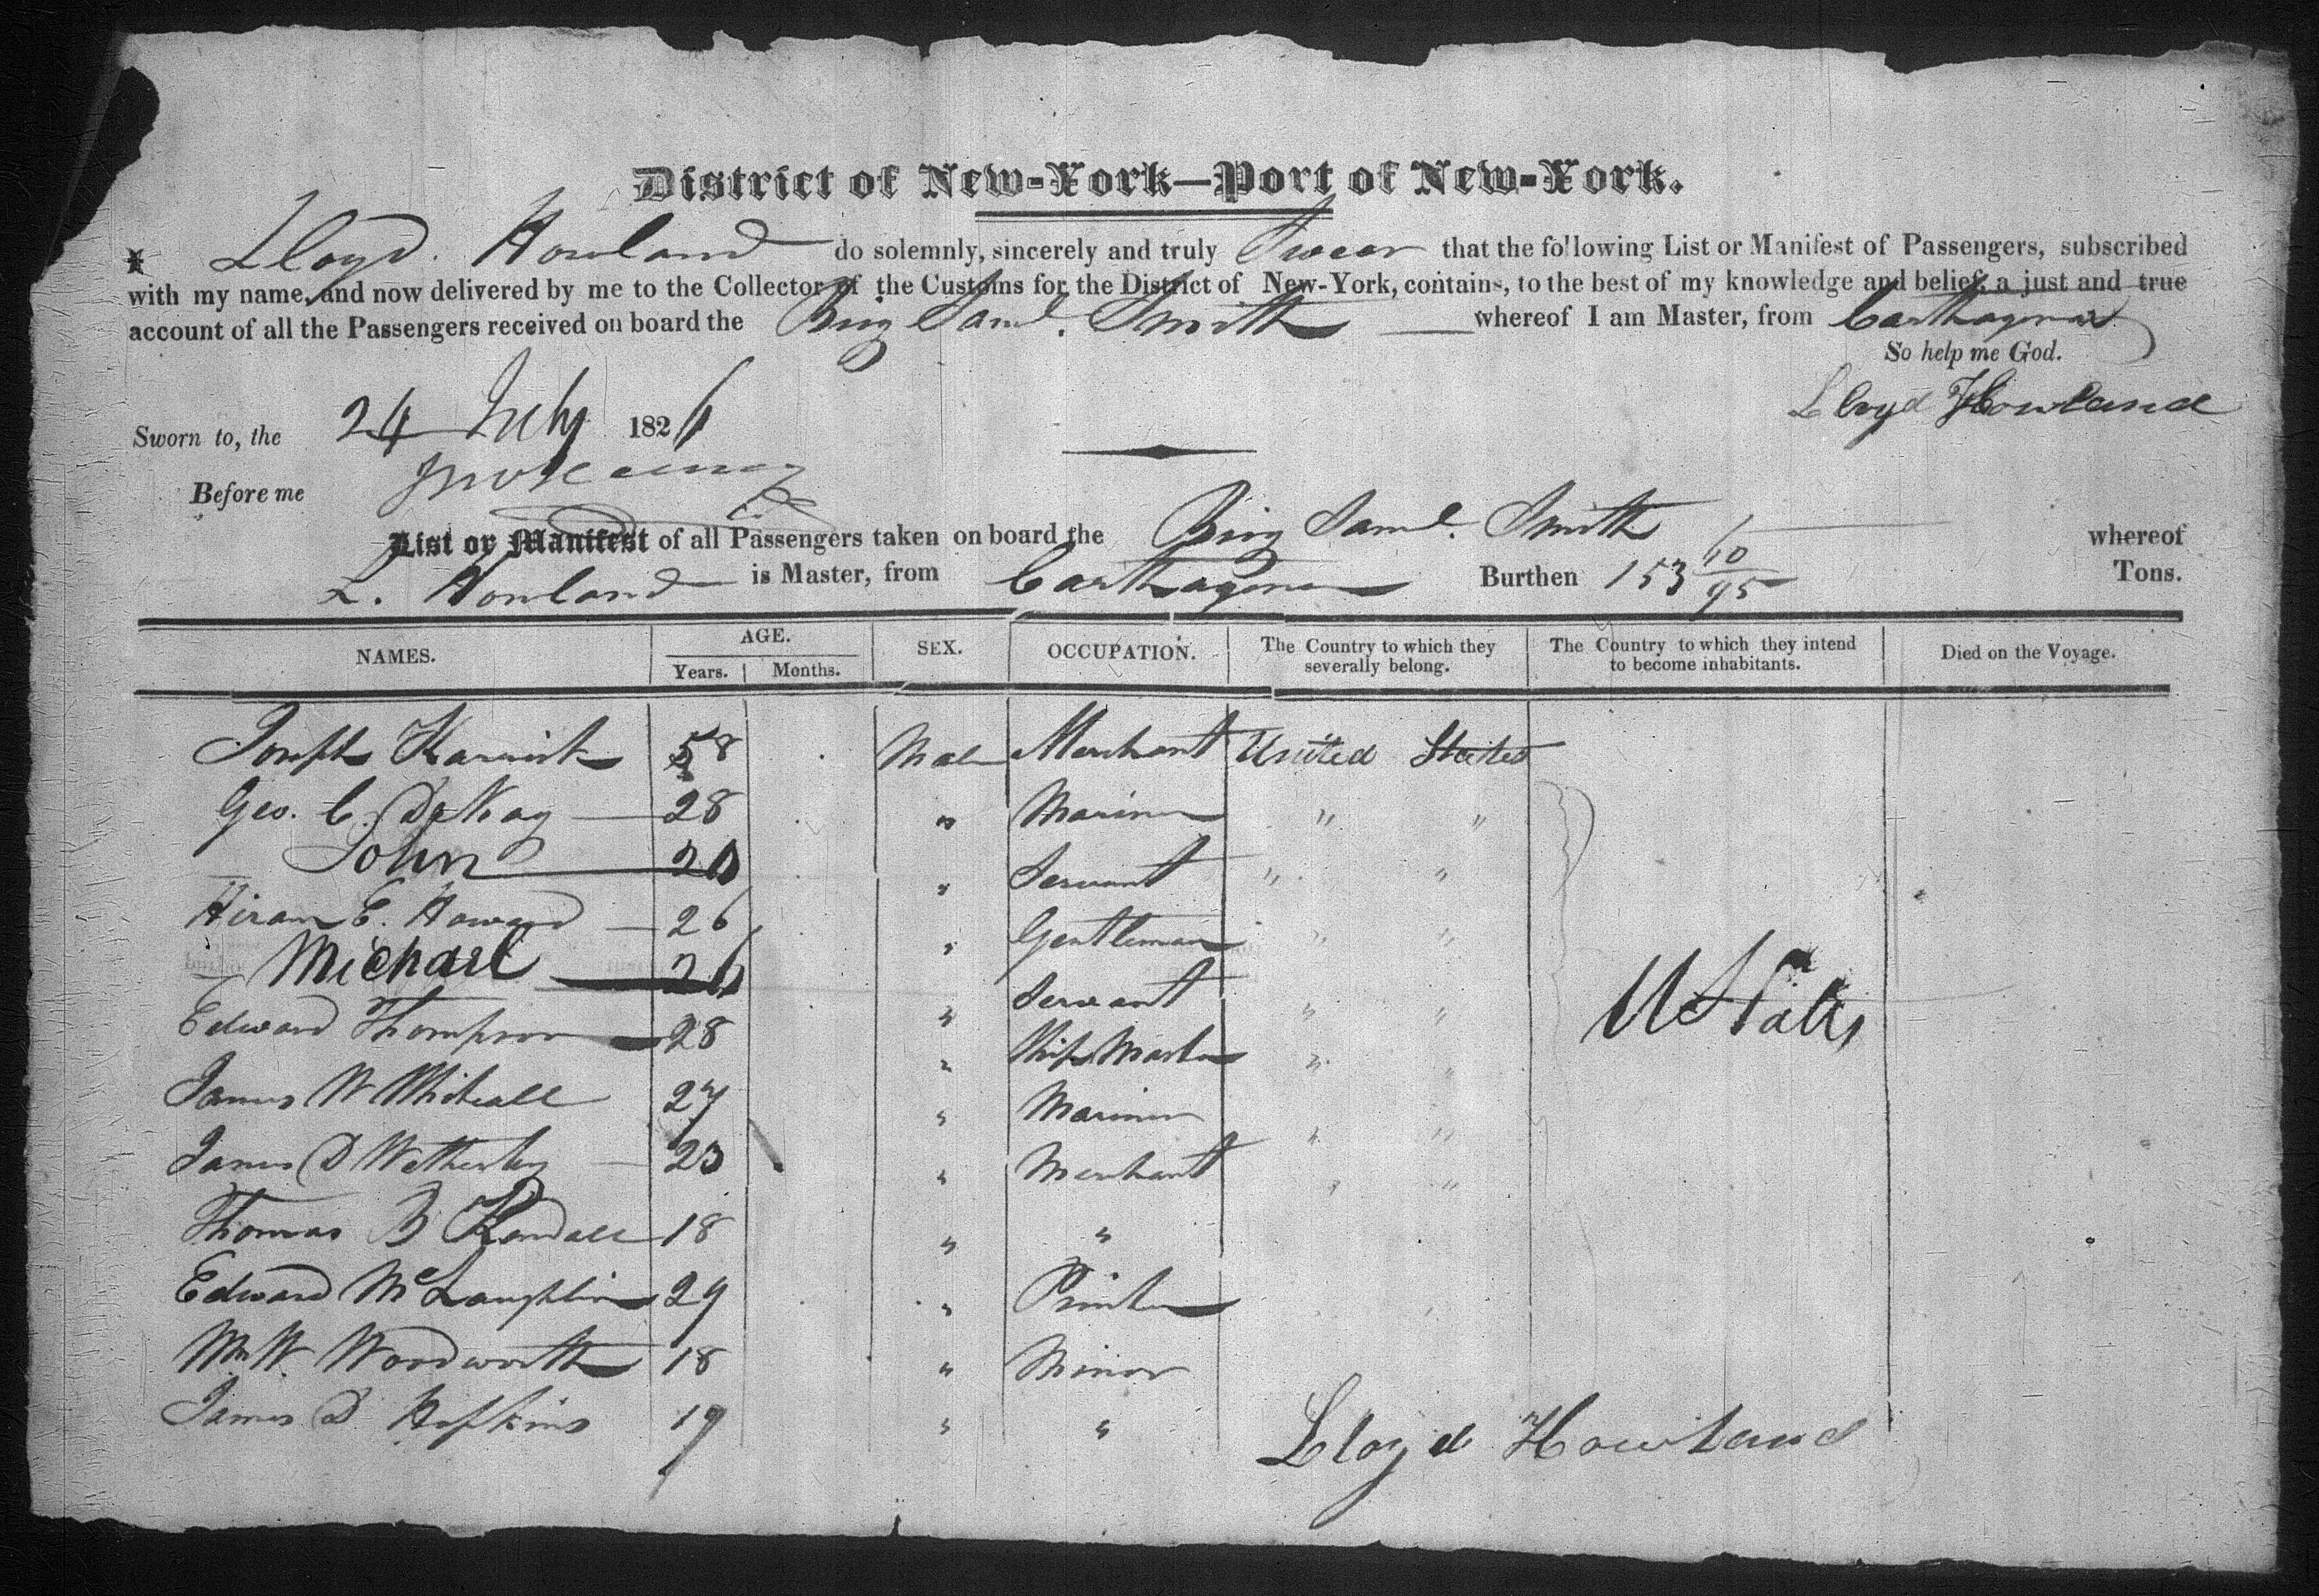 District of New-York—Port of New-York.
I Lloyd Howland do solemnly, sincerely and truly Swear that the following List or Manifest of Passengers, subscribed
with my name, and now delivered by me to the Collector of the Customs for the District of New-York, contains, to the best of my knowledge and belief, a just and true
account of all the Passengers received on board the Brig Saml. Smith whereof I am Master, from Carthagena
So help me God.
Lloyd Howland
Sworn to, the 24 July 1826
Before me
List or Manifest of all Passengers taken on board the Brig Saml. Smith whereof
L. Howland is Master, from Carthagena Burthen 153 10/95 Tons.
NAMES. AGE. Years. Months. SEX. OCCUPATION. The Country to which they severally belong. The Country to which they intend to become inhabitants. Died on the Voyage.
Joseph Karrick 58 Male Merchant United States
Geo. C. DeKay 28 " Mariner " "
John " Servant " "
Hiram E. Howard 26 " Gentleman " "
Michael 26 " Servant " "
U States
Edward Thompson 28 " Ship Master " "
James W Mitchell 27 " Mariner " "
James D Wetherby 23 " Merchant " "
Thomas B Kendall 18 " "
Edward McLaughlin 29 " Printer
Wm W. Woodworth 18 " Minor
James D Hopkins 19 " "
Lloyd Howland